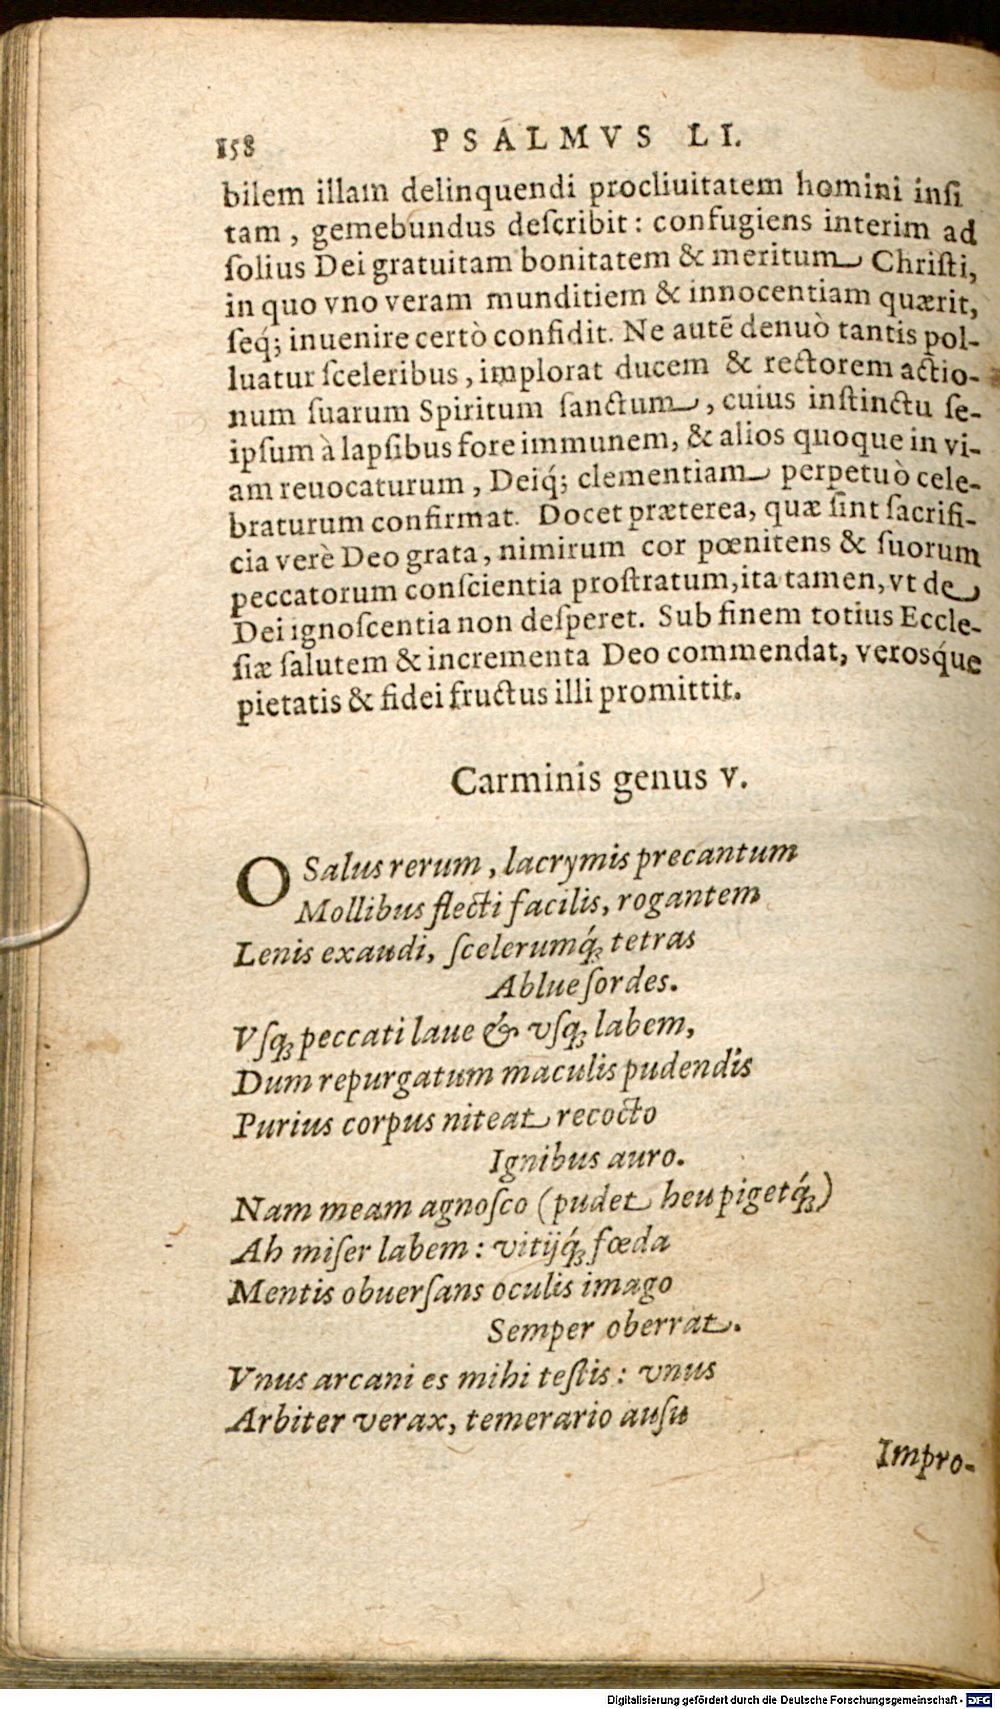 158 PSALMVS LI.
bilem illam delinquendi procliuitatem homini insi
tam, gemebundus deſcribit: confugiens interim ad
ſolius Dei gratuitam bonitatem & meritum Chriſti,
in quo vno veram munditiem & innocentiam quærit,
ſeq́; inuenire certò confidit. Ne autẽ denuò tantis pol-
luatur ſceleribus, implorat ducem & rectorem actio-
num ſuarum Spiritum ſanctum, cuius inſtinctu ſe-
ipſum à lapſibus fore immunem, & alios quoque in vi-
am reuocaturum, Deiq́; clementiam perpetuò cele-
braturum confirmat. Docet præterea, quæ ſint ſacrifi-
cia verè Deo grata, nimirum cor pœnitens & ſuorum
peccatorum conſcientia proſtratum, ita tamen, vt de
Dei ignoſcentia non deſperet. Sub finem totius Eccle-
ſiæ ſalutem & incrementa Deo commendat, verosq́ue
pietatis & fidei fructus illi promittit.
Carminis genus v.
O Salus rerum, lacrymis precantum
Mollibus flecti facilis, rogantem
Lenis exaudi, ſcelerumq́; tetras
Ablue ſordes.
Vſq; peccati laue & vſq; labem,
Dum repurgatum maculis pudendis
Purius corpus niteat recocto
Ignibus auro.
Nam meam agnoſco (pudet heu pigetq́;)
Ah miſer labem: vitijq́; fœda
Mentis obuerſans oculis imago
Semper oberrat.
Vnus arcani es mihi teſtis: vnus
Arbiter verax, temerario auſu
Impro-
Digitalisierung gefördert durch die Deutsche Forschungsgemeinschaft - DFG